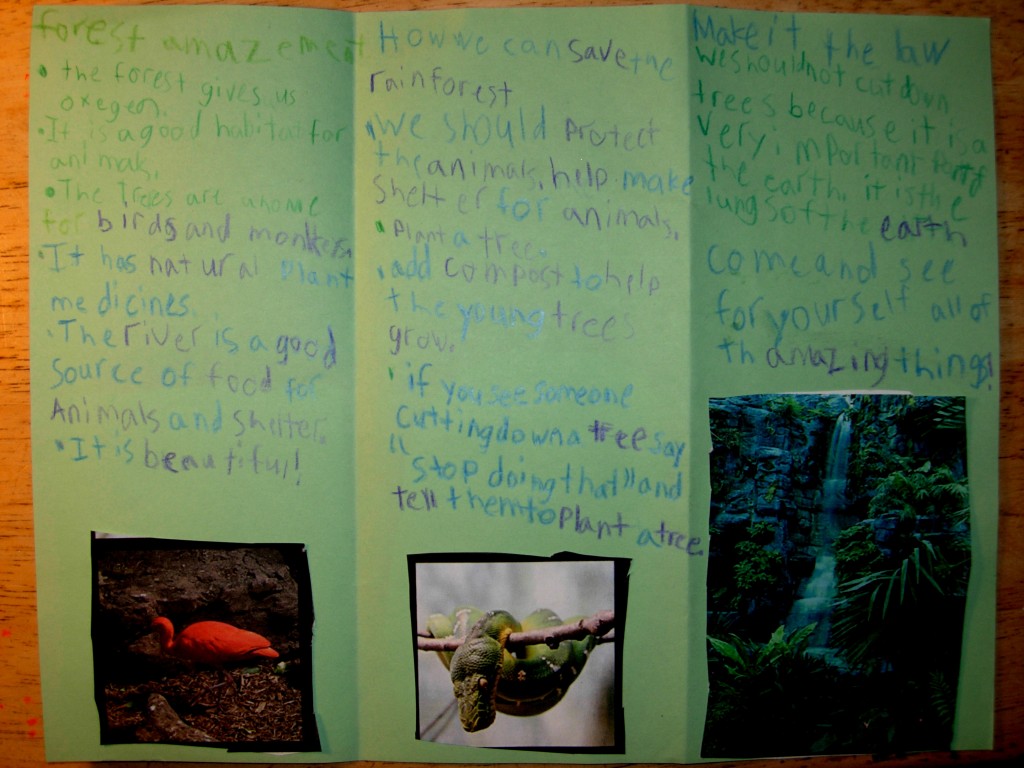 forest amazement
• the forest gives us
oxegen.
• It is a good habitat for
animals.
• The Trees are a home
for birds and monkeys.
• It has natural plant
medicines.
• The river is a good
source of food for
Animals and shelter.
• It is beautiful!
How we can save the
rainforest
• we should protect
the animals, help make
shelter for animals.
• Plant a tree.
• add compost to help
the young trees
grow.
• if you see someone
cutting down a tree say
"stop doing that" and
tell them to plant a tree
Make it the law
we should not cut down
trees because it is a
very important part of
the earth. it is the
lungs of the earth
come and see
for yourself all of
th amazing things!